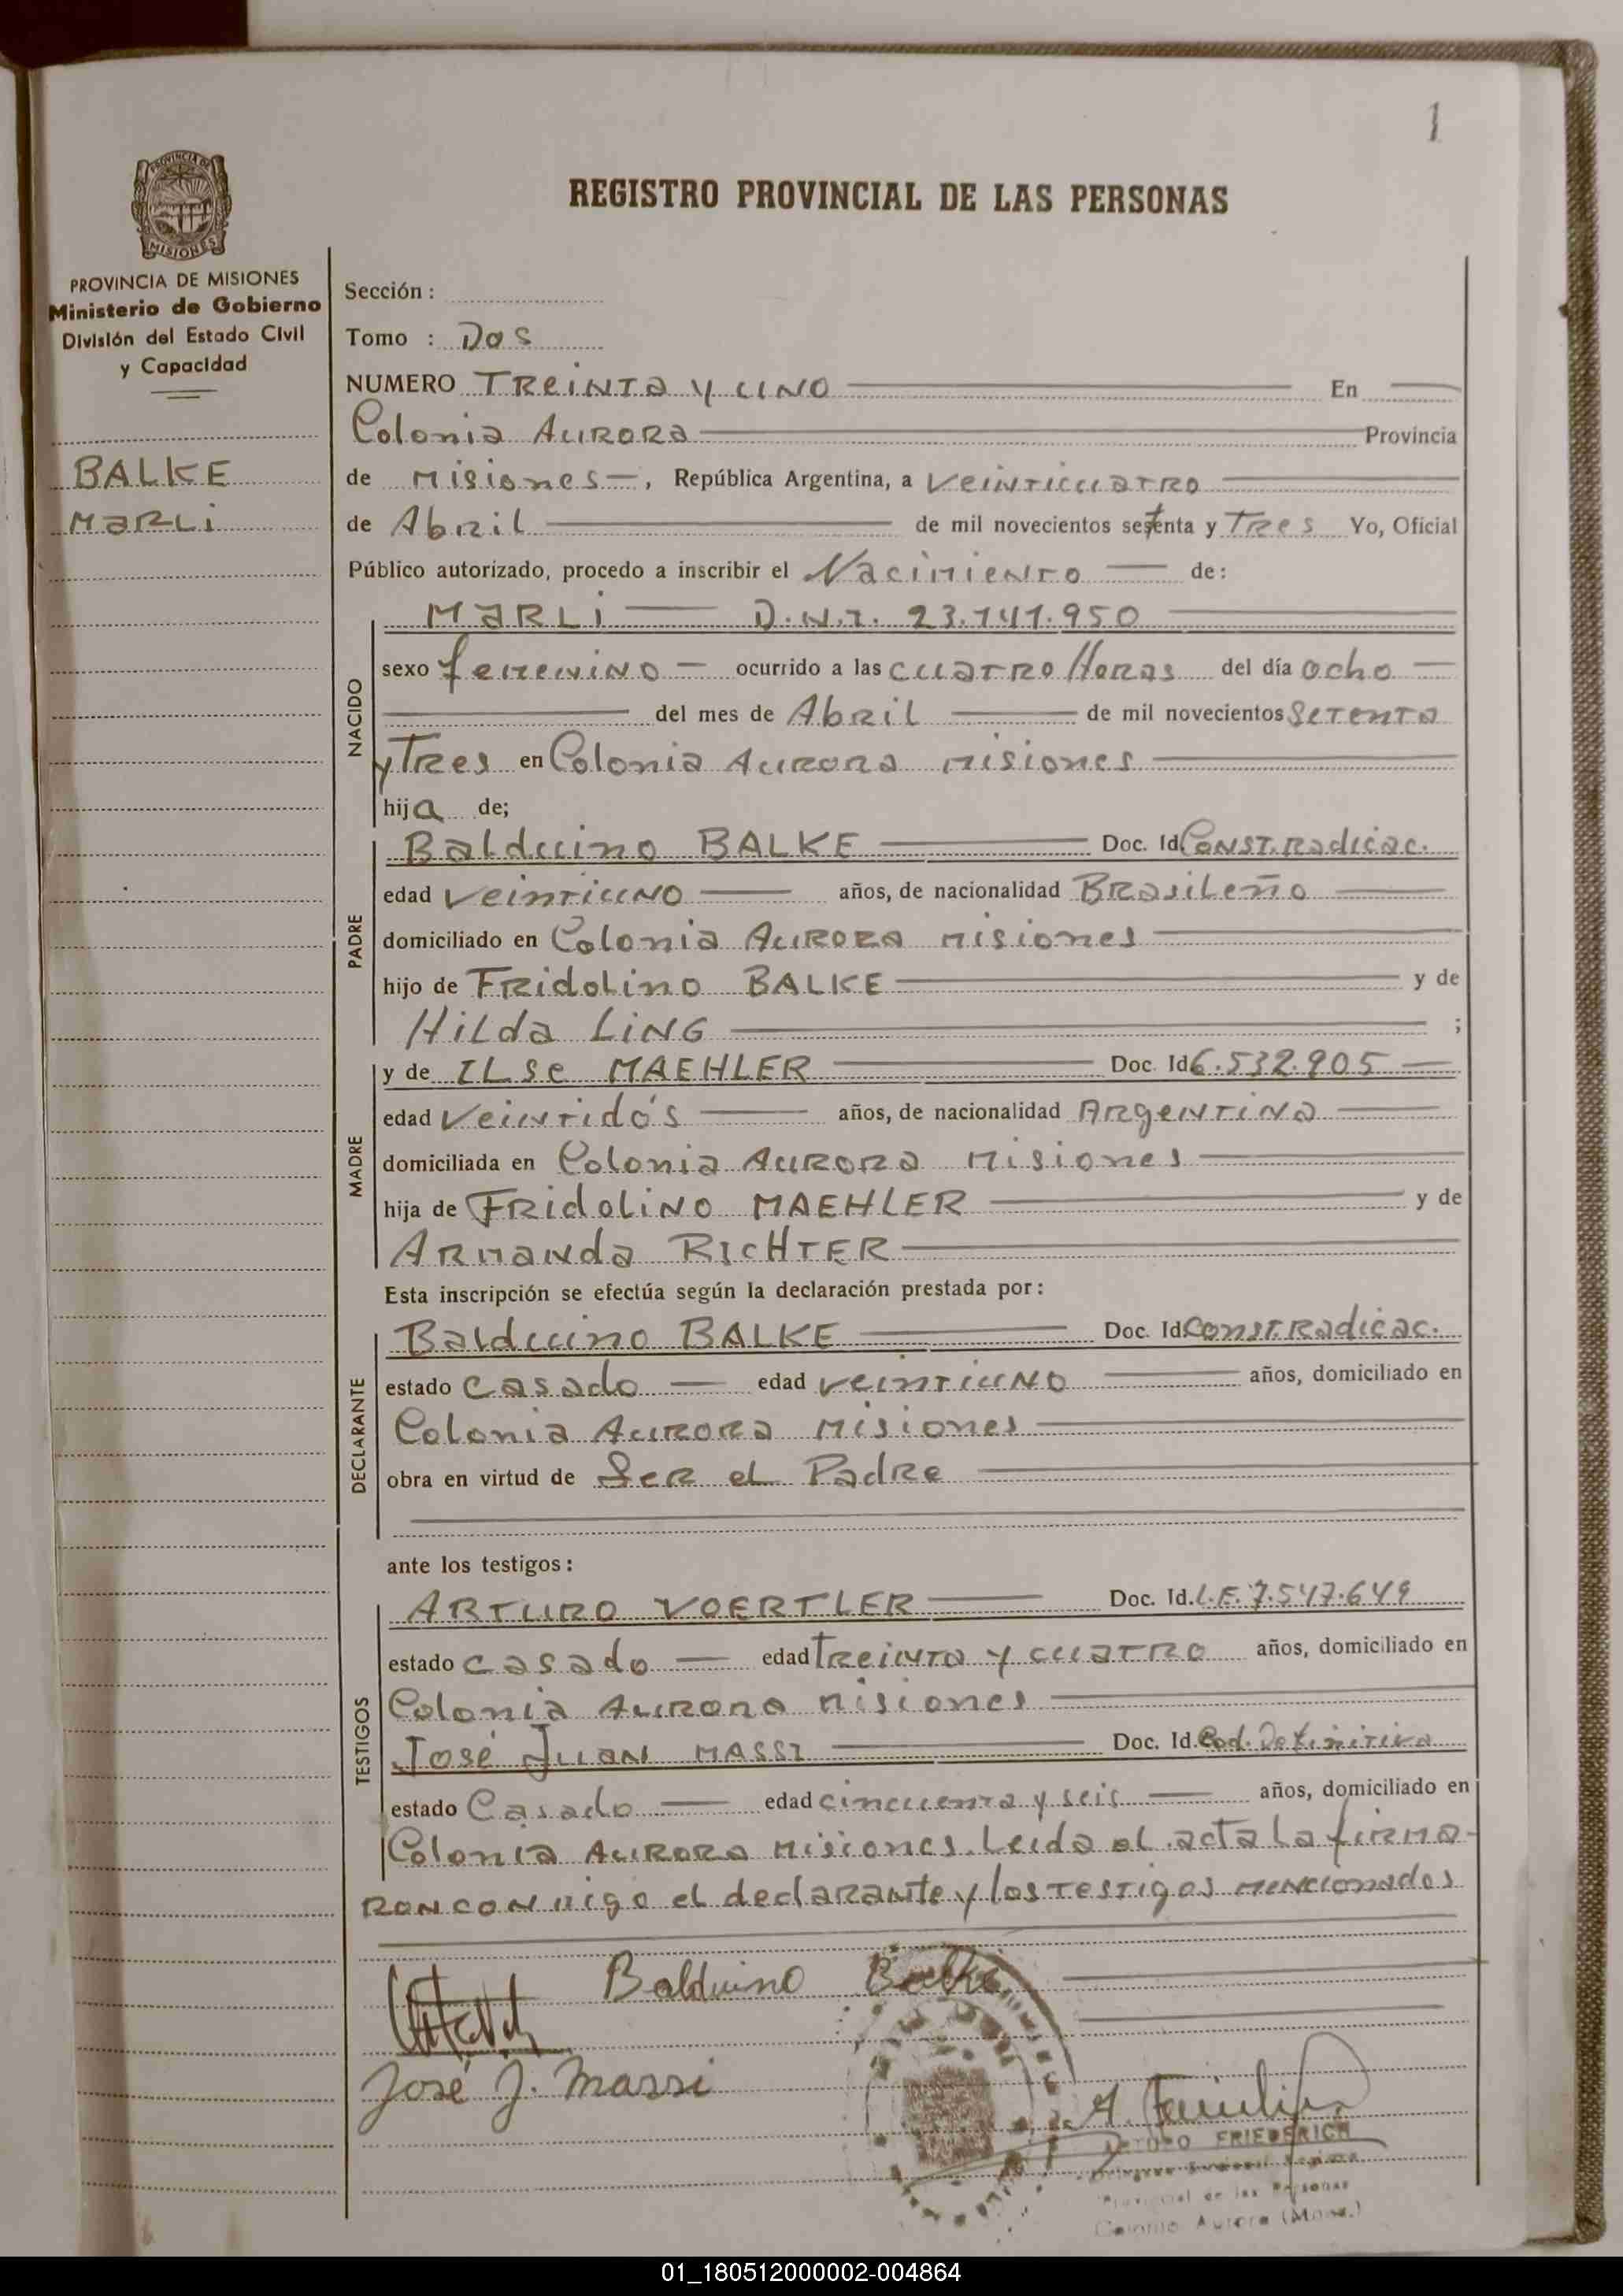 1
REGISTRO PROVINCIAL DE LAS PERSONAS
PROVINCIA DE MISIONES
PROVINCIA DE MISIONES
Ministerio de Gobierno
División del Estado Civil
y Capacidad
BALKE
MARLi
Sección :
Tomo : Dos
NUMERO TReiNTa y UNO En
Colonia AURORa Provincia
de Misiones, República Argentina, a VeiNTicuaTRO
de Abril de mil novecientos setenta y TRes Yo, Oficial
Público autorizado, procedo a inscribir el Nacimiento de:
NACIDO
MaRLi D.N.I. 23.141.950
sexo femenino ocurrido a las cuaTRO Horas del día ocho
del mes de Abril de mil novecientos SeTenTa
y TRes en Colonia Aurora Misiones
hija de;
PADRE
Balduino BALKE Doc. Id Const. Radicac.
edad VeinTiuNO años, de nacionalidad BRasileño
domiciliado en Colonia AURORa Misiones
hijo de FRidolino BALKE y de
Hilda LiNG ;
MADRE
y de ILse MAEHLER Doc. Id 6.532.905
edad Veintidós años, de nacionalidad ArgenTiNa
domiciliada en Colonia AURORa Misiones
hija de FRidoLiNO MAEHLER y de
ARmanda RICHTER
Esta inscripción se efectúa según la declaración prestada por:
DECLARANTE
Balduino BALKE Doc. Id Const. Radicac.
estado Casado edad veinTiuNO años, domiciliado en
Colonia AuRORa Misiones
obra en virtud de SeR el PadRe
ante los testigos:
TESTIGOS
ARTURO VOERTLER Doc. Id. L.E. 7.547.649
estado casado edad TReinTa y cuaTRO años, domiciliado en
Colonia AuRORa Misiones
José Juan MASSI Doc. Id. Ced. Definitiva
estado Casado edad cincuenTa y seis años, domiciliado en
Colonia AuRORa Misiones. Leida el acta la firma-
RON CONmigo el declaRante y los Testigos mencionados
Balduino Balke
José J. Massi
A.
ARTURO FRIEDERICH
Provincial de las Personas
Colonia Aurora (Mnes.)
01_180512000002-004864